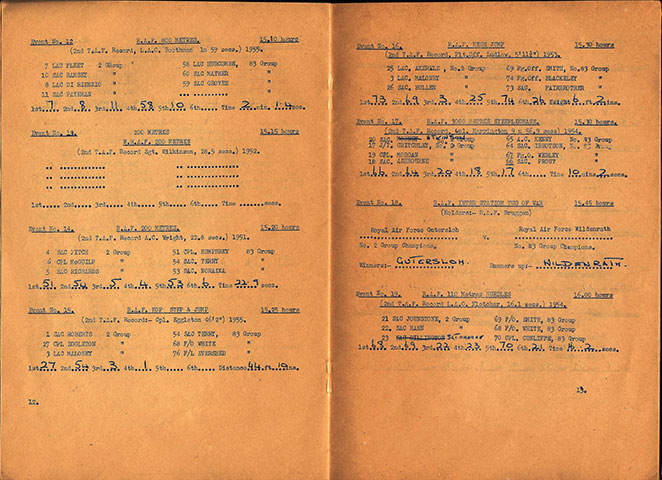 Event No. 12 R.A.F. 800 METRES. 15.10 hours
(2nd T.A.F. Record, L.A.C. Boothman 1m 59 secs.) 1955.
7 LAC FLEET 2 Group 58 LAC HURCOMBE, 83 Group
10 SAC RAMSEY " 60 SAC MATHER "
8 LAC DI RIENZIO " 59 SAC GROVES "
11 SAC PATEMAN "
1st. 7 2nd. 8 3rd. 11 4th. 58 5th. 10 6th..... Time 2 min. secs.
Event No. 13. 200 METRES 15.15 hours
W.R.A.F. 200 METRES
(2nd T.A.F. Record Sgt. Wilkinson, 28.5 secs.) 1952.
1st..... 2nd..... 3rd..... 4th..... 5th..... 6th..... Time ......secs.
Event No. 14. R.A.F. 200 METRES. 15.20 hours
(2nd T.A.F. Record A.C. Wright, 21.8 secs.) 1951.
4 SAC FITCH 2 Group 51 CPL. HUMPHREY 83 Group
6 CPL McGUILF " 54 SAC. TERRY, "
5 SAC RICHARDS " 53 SAC. NORAIKA "
1st. 51 2nd. 54 3rd. 5 4th. 4 5th. 53 6th. 6 Time 22.9 secs.
Event No. 15. R.A.F. HOP STEP & JUMP 15.25 hours
(2nd T.A.F. Record:- Cpl. Eggleton 46'2") 1955.
1 SAC ROBERTS 2 Group 54 SAC TERRY, 83 Group
27 CPL EGGLETON " 68 F/O WHITE "
3 LAC MALONEY " 76 F/L EVERSHED "
1st. 27 2nd. 54 3rd. 3 4th. 1 5th..... 6th..... Distance 44 ft. 10 ins.
12.
Event No. 16. R.A.F. HIGH JUMP 15.30 hours
(2nd T.A.F. Record, Plt.Off. Ludlow, 5'11½") 1953.
25 LAC, AKERELE, No.2 Group 69 Fg.Off. SMITH, No.83 Group
3 LAC, MALONEY " 74 Fg.Off. BLACKLEY "
26 SAC, HULLEN " 73 SAC, FAIRBROTHER "
1st. 73 2nd. 69 3rd. 3 4th. 25 5th. 74 6th. 26 Height 6 ft. 2 ins.
Event No. 17. R.A.F. 3000 METRES STEEPLECHASE. 15.30 hours
(2nd T.A.F. Record, Cpl. Farrington 9 m 56.9 secs) 1954.
20 SAC. ATKINSON No. 2 Group 65 A.C. KENNY No. 83 Group
17 J/T. CRITCHLEY, No. 2 Group 64 SAC. IBBOTSON No.
19 CPL MORGAN " 67 Fg.O. WEBLEY "
18 SAC. ASHBOURNE " 66 SAC. PROUT "
1st. 66 2nd. 64 3rd. 20 4th. 18 5th. 17 6th..... Time 10 mins. 2 secs.
Event No. 18. R.A.F. INTER STATION TUG OF WAR 15.45 hours
(Holders:- R.A.F. Bruggen)
Royal Air Force Gutersloh Royal Air Force Wildenrath
v.
No. 2 Group Champions. No. 83 Group Champions.
Winners:- GUTERSLOH. Runners up:- WILDENRATH.
Event No. 19. R.A.F. 110 Metres HURDLES 16.00 hours
(2nd T.A.F. Record LAC G. Fletcher, 16.1 secs.) 1954.
21 SAC JOHNSTONE, 2 Group 69 F/O. SMITH, 83 Group
22. SAC HANN " 68 F/O. WHITE, 83 Group
23 SAC 70 CPL. CUNLIFFE, 83 Group
1st. 68 2nd. 69 3rd. 22 4th. 23 5th. 70 6th. 21 Time secs.
13.